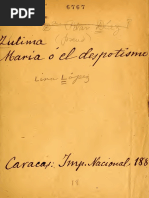 6767
Zulima
Maria ó el despotismo
Lina López
Caracas: Imp. Nacional, 188
18